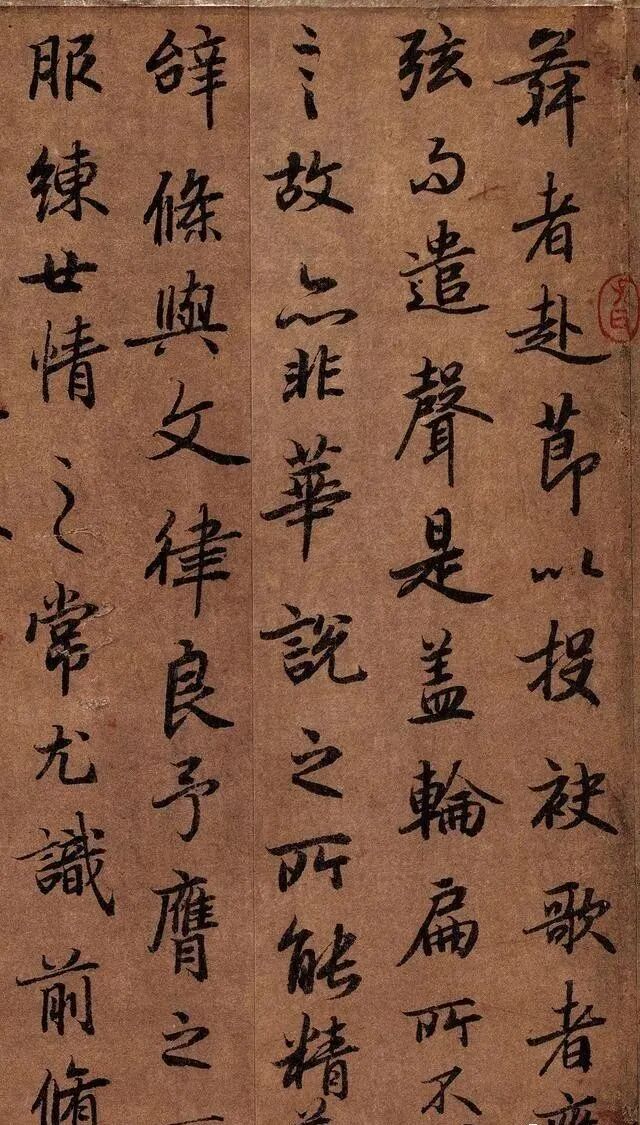 舞者赴節以投袂歌者應
弦而遣聲是盖輪扁所不
言故亦非華說之所能精
辝條與文律良予膺之
服練世情之常尤識前脩